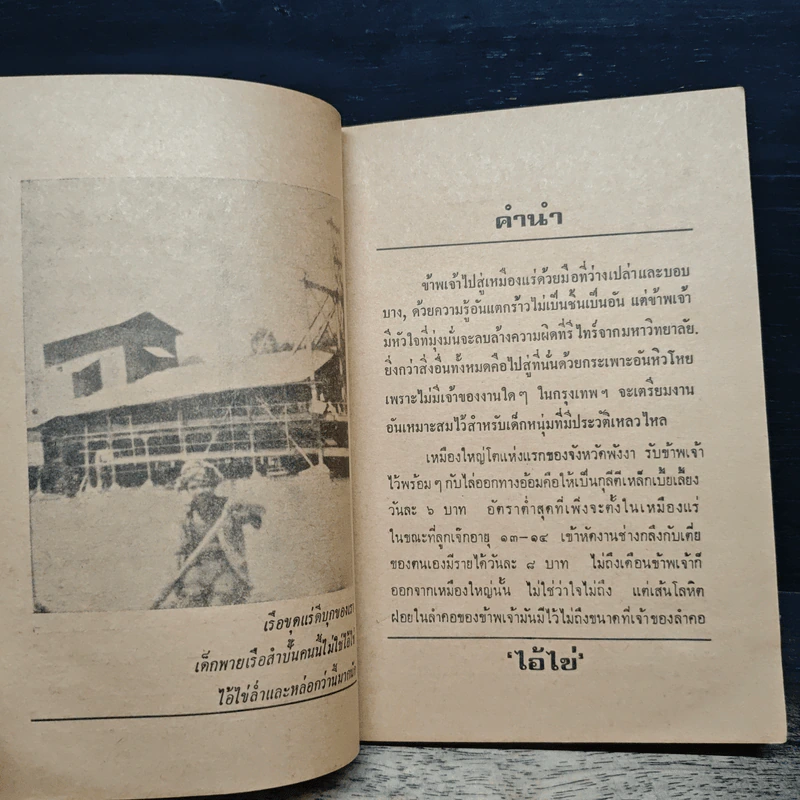 เรือขุดแร่ดีบุกของเรา
เด็กพายเรือสำปั้นคนนี้ไม่ใช่ไอ้ไข่
ไอ้ไข่ล่ำและหล่อกว่านี้มาก
คำนำ
ข้าพเจ้าไปสู่เหมืองแร่ด้วยมือที่ว่างเปล่าและบอบ
บาง, ด้วยความรู้อันแตกร้าวไม่เป็นชิ้นเป็นอัน แต่ข้าพเจ้า
มีหัวใจที่มุ่งมั่นจะลบล้างความผิดที่รีไทร์จากมหาวิทยาลัย.
ยิ่งกว่าสิ่งอื่นทั้งหมดคือไปสู่ที่นั่นด้วยกระเพาะอันหิวโหย
เพราะไม่มีเจ้าของงานใดๆ ในกรุงเทพฯ จะเตรียมงาน
อันเหมาะสมไว้สำหรับเด็กหนุ่มที่มีประวัติเหลวไหล
เหมืองใหญ่โตแห่งแรกของจังหวัดพังงา รับข้าพเจ้า
ไว้พร้อมๆ กับไล่ออกทางอ้อมคือให้เป็นกุลีตีเหล็กเบี้ยเลี้ยง
วันละ ๖ บาท อัตราต่ำสุดที่เพิ่งจะตั้งในเหมืองแร่
ในขณะที่ลูกเจ๊กอายุ ๑๓–๑๔ เข้าหัดงานช่างกลึงกับเตี่ย
ของตนเองมีรายได้วันละ ๘ บาท ไม่ถึงเดือนข้าพเจ้าก็
ออกจากเหมืองใหญ่นั้น ไม่ใช่ว่าใจไม่ถึง แต่เส้นโลหิต
ฝอยในลำคอของข้าพเจ้ามันมีไว้ไม่ถึงขนาดที่เจ้าของลำคอ
'ไอ้ไข่'